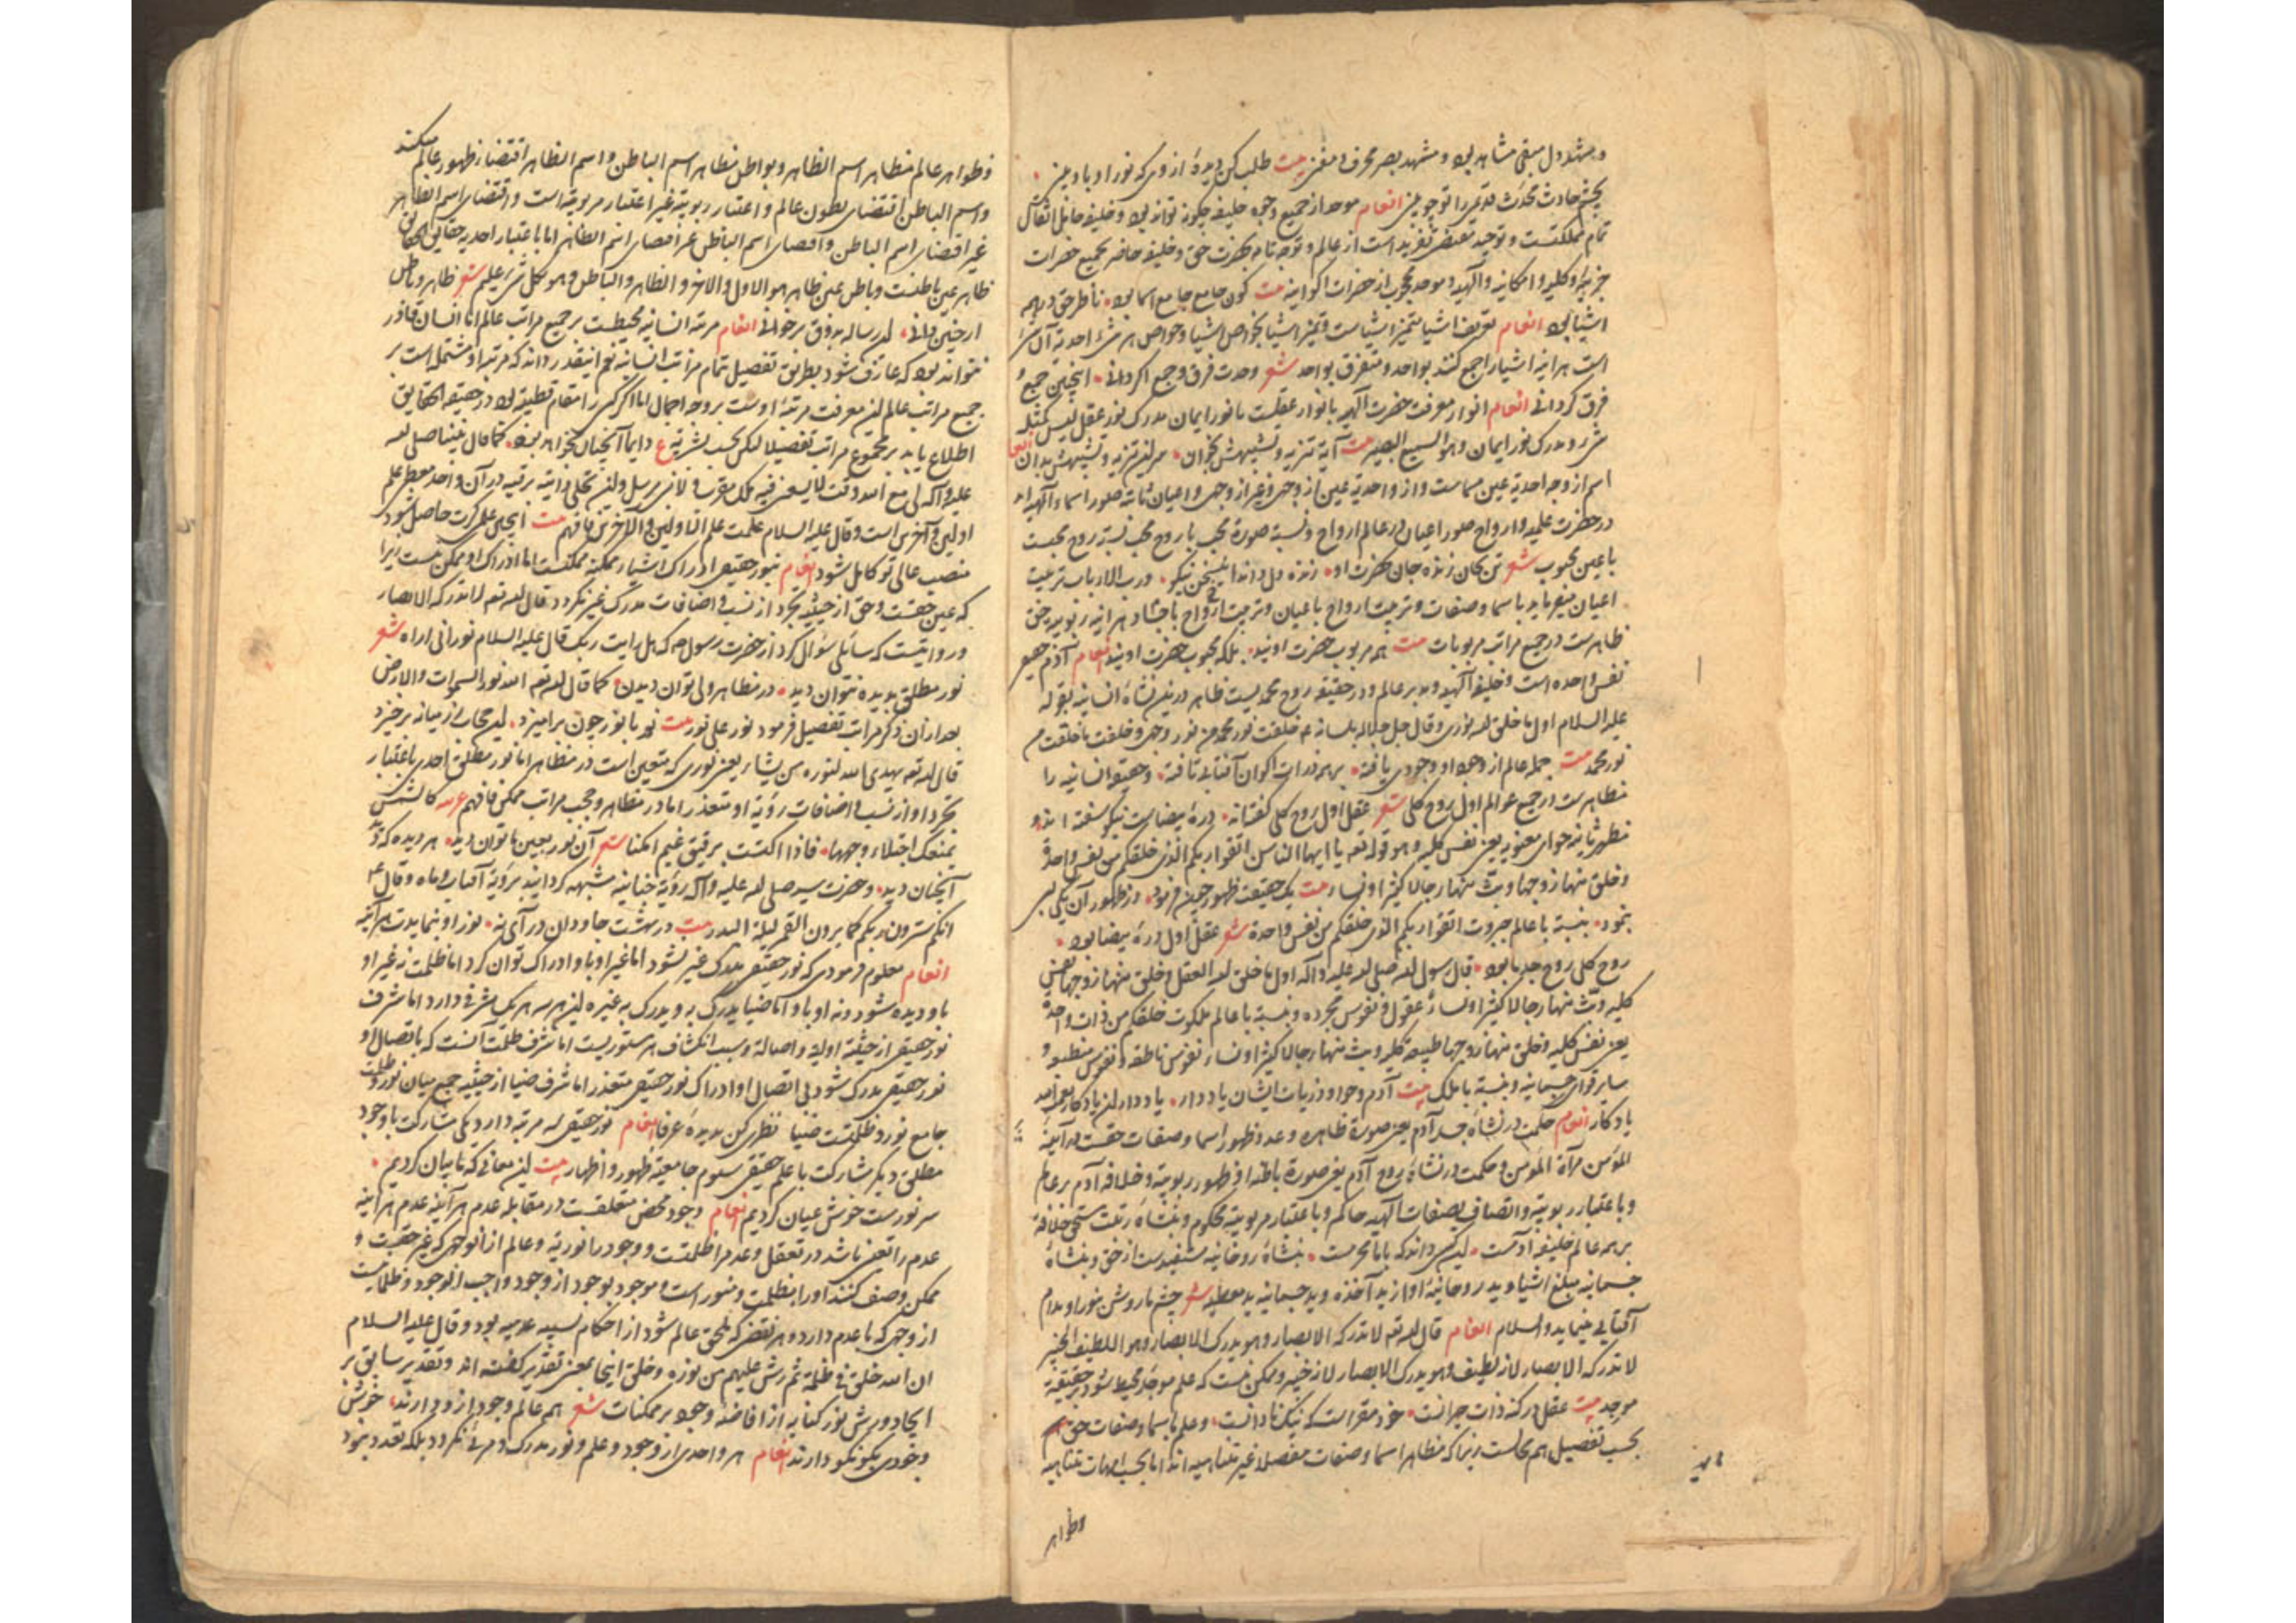 و مشهد دل مبقی مشاهد بود و مشهد بصر محرق و مفنی بیت طلب کن دیدهٔ از وی که نور او باو بینی
بچشم حادث محدث قدیمی را تو چو بینی انعام موحد از جمیع وجوه خلیفه چگونه تواند بود و خلیفه حامل اثقال
تمام مملکتست و توحید مقتضی تفرید است از عالم و توجه تام بحضرت حق و خلیفه حاضر بجمیع حضرات
جزییه و کلیه و امکانیه و الهیه و موحد محجوب از حضرات اکوانیه بیت کون جامع جامع اسما بود ناظر حق در همه
اشیا بود انعام تعریف اشیا بتمیز اشیاست و تمیز اشیا بخواص اشیا و خواص هر شیء احدیة آن شیء
است هرآینه اشیا را جمع کند بواحد و متفرق بواحد شعر وحدت فرق و جمع اگر دانی اینچنین جمع و
فرق گردانی انعام انوار معرفت حضرت الهیه یا نور عقلست یا نور ایمان مدرک نور عقل لیس کمثله
شیء و مدرک نور ایمان و هو السمیع البصیر بیت آیة تنزیه و تشبیهش بخوان سر این تنزیه و تشبیهش بدان انعام
اسم از وجه احدیة عین مسماست و از واحدیة عین از وجهی و غیر از وجهی و اعیان ثابته صور اسماء الهیه اند
در حضرت علمیه و ارواح صور اعیان در عالم ارواح و نسبة صورة محب با روح محب نسبة روح محبست
با عین محبوب شعر تن بجان زنده جان بحضرت او زنده دل داند این سخن نیکو و رب الارباب تربیت
اعیان میفرماید باسما و صفات و تربیت ارواح باعیان و تربیت ارواح باجساد هرآینه ربوبیة حق
ظاهرست در جمیع مراتب مربوبات بیت همه مربوب حضرت اویند بلکه محبوب حضرت اویند انعام آدم جمیع
نفس واحده است و خلیفه الهیه و مدبر عالم و در حقیقه روح محمدیست ظاهر درین نشأة انسانیه بقوله
علیه السلام اول ما خلق الله نوری و قال جل جلاله بلسانه ع خلقت نور محمد من نور وجهی و خلقت ما خلقت من
نور محمد بیت جمله عالم از وجود او وجودی یافته بر همه ذرات اکوان آفتابی تافته و حقیقة انسانیه را
مظاهرست در جمیع عوالم اول روح کلی شعر عقل اول روح کلی گفته‌اند درهٔ بیضاست نیکو سفته‌اند و
مظهر ثانیه حوای معنویه یعنی نفس کلیه و هو قوله تعه یا ایها الناس اتقوا ربکم الذی خلقکم من نفس واحدة
و خلق منها زوجها و بث منهما رجالا کثیرا و نساء بیت یک حقیقت ظهور چون فرمود در ظهور آن یکی بسی
نمود بنسبة با عالم جبروت اتقوا ربکم الذی خلقکم من نفس واحدة شعر عقل اول درهٔ بیضا بود
روح کلی روح جد ما بود قال رسول الله صلی الله علیه و آله اول ما خلق الله العقل و خلق منها زوجها نفس
کلیه و بث منهما رجالا کثیرا و نساء عقول و نفوس مجرده و بنسبة با عالم ملکوت خلقکم من ذات واحدة
یعنی نفس کلیه و خلق منها زوجها طبیعة کلیه و بث منهما رجالا کثیرا و نساء نفوس ناطقه و نفوس منطبعه و
سایر قوای جسمانیه و بنسبة با ملک بیت آدم و حوا و ذریات ایشان یاد دار یاد دار این یادگار نعمة الله
یادگار انعام حکمت در نشأة جسد آدم یعنی صورة ظاهره و عدد ظهور اسما و صفات حقست در آینهٔ
المؤمن مرآة المؤمن و حکمت در نشأة روح آدم یعنی صورة باطنه او ظهور ربوبیة و خلافة آدم بر عالم
و باعتبار ربوبیة و اتصاف بصفات الهیه حاکم و باعتبار مربوبیة محکوم و بنشأة رتبت مستحق خلافة
بر همه عالم خلیفه آدمست این کسی داند که با ما محرمست بنشأة روحانیه مستفیدست از حق و بنشأة
جسمانیه مبلغ اشیا و ید روحانیهٔ او از ید آخذه و ید جسمانیه ید معطیه شعر چشم ما روشن بنور او مدام
آفتابی مینماید والسلام انعام قال الله تعه لا تدرکه الابصار و هو یدرک الابصار و هو اللطیف الخبیر
لا تدرکه الابصار لانه لطیف و هو یدرک الابصار لانه خبیر و ممکن نیست که علم موجد محیط شود بر حقیقة
موجد بیت عقل در کنه ذات حیرانست خود مقر است که نیک نادانست و علم باسما و صفات حق هم
بحسب تفصیل هم محالست زیرا که مظاهر اسما و صفات مفصلا غیر متناهیه‌اند اما بحسب امهات متناهیه
وظواهر
وظواهر عالم مظاهر اسم الظاهر و بواطن مظاهر اسم الباطن و اسم الظاهر اقتضاء ظهور عالم میکند
و اسم الباطن اقتضای بطون عالم و اعتبار ربوبیة غیر اعتبار مربوبیة است و اقتضای اسم الظاهر
غیر اقتضای اسم الباطن و اقتضای اسم الباطن غیر اقتضای اسم الظاهر اما باعتبار احدیه حقایق الحقایق
ظاهر عین باطنست و باطن عین ظاهر هو الاول و الاخر و الظاهر و الباطن و هو بکل شیء علیم شعر ظاهر و باطن
ار چنین دانی این رساله بذوق برخوانی انعام مرتبه انسانیه محیطست بر جمیع مراتب عالم اما انسان قادر
نتواند بود که عارف شود بطریق تفصیل تمام مراتب انسانیه نعم اینقدر داند که مرتبه او مشتمله است بر
جمیع مراتب عالم این معرفت مرتبهٔ اوست بروجه اجمال اما اگر کسی را مقام قطبیه بود در حقیقة الحقایق
اطلاع یابد بر مجموع مراتب تفصیلا لیکن بحسب بشریة ع دایما آنچنان نخواهد بود کما قال نبینا صلی الله
علیه و آله لی مع الله وقت لا یسعنی فیه ملک مقرب و لا نبی مرسل و این تجلی ذاتیه برقیه در آن واحد معطی علم
اولین و آخرین است و قال علیه السلام علمت علم الاولین و الآخرین فافهم بیت اینچنین علمی گرت حاصل شود
منصب عالی تو کامل شود انعام بنور حقیقی ادراک اشیاء ممکنه ممکنست اما ادراک او ممکن نیست زیرا
که عین حقست و حق از حیثیه تجرد از نسب و اضافات مدرک غیر نگردد قال الله تعه لا تدرکه الابصار
و روایتیست که سائلی سؤال کرد از حضرت رسول صه که هل رایت ربک قال علیه السلام نورانی اراه شعر
نور مطلق بدیده نتوان دید در مظاهر ولی توان دیدن کما قال الله تعه الله نور السموات والارض
بعد از آن ذکر مراتب تفصیل فرمود نور علی نور بیت نور با نور چون برامیزد این حجاب از میانه برخیزد
قال الله تعه یهدی الله لنوره من یشاء یعنی نوری که متعین است در مظاهر اما نور مطلق احدی باعتبار
تجرد او از نسب و اضافات رؤیة او متعذر اما در مظاهر و حجب مراتب ممکن فافهم عربیه کالشمس
تمنعک اجتلاءک وجهها فاذا اکتست برقیق غیم امکنا شعر آن نور بعین ما توان دید هر دیده که دید
آنچنان دید و حضرت سید صلی الله علیه و آله رؤیة جنانیه مشبهه گردانید برؤیة آفتاب و ماه و قال ع
انکم سترون ربکم کما یرون القمر لیلة البدر بیت در بهشت جاودان در آی نه نور او بنمایدت هر آینه
انعام معلوم فرمودی که نور حقیقی مدرک غیر نشود اما غیر او باو ادراک توان کرد اما ظلمت نه غیر او
باو دیده شود و نه او باو اما ضیا یدرک به و یدرک به غیره این هر سه هر یک شرفی دارد اما شرف
نور حقیقی از حیثیة اولیة و اصالة و سبب انکشاف هر مستوریست اما شرف ظلمت آنست که باتصال او
نور حقیقی مدرک شود بی اتصال او ادراک نور حقیقی متعذر اما شرف ضیا از حیثیه جمع میان نور و ظلمت
جامع نور و ظلمتست ضیا نظری کن بدیدهٔ عرفا انعام نور حقیقی سه مرتبه دارد یکی مشارکت با وجود
مطلق دیگر مشارکت با علم حقیقی سیوم جامعیة ظهور و اظهار بیت این معانی که ما بیان کردیم
سر نورست خوش عیان کردیم انعام وجود محض متعلقست در مقابله عدم هر آینه عدم هر آینه
عدم را تعینی باشد در تعقل و عدم را ظلمتست و وجود را نوریه و عالم از آنوجهی که غیر حقست و
ممکن وصف کنند او را بظلمت و منور است و موجود بوجود از وجود واجب الوجود و ظلماتیست
از وجهی که با عدم دارد و هر نقصی که ملحق عالم شود از احکام نسبیه عدمیه بود و قال علیه السلام
ان الله خلق فی ظلمة ثم رش علیهم من نوره و خلق اینجا بمعنی تقدیر گفته‌اند و تقدیر سابق بر
ایجاد و رش نور کنایه از افاضه وجود بر ممکنات شعر همه عالم وجود از و دارند خوش
وجودی نکو نکو دارند انعام هر واحدی از وجود و علم و نور مدرک و مرئی نگردد بلکه تعدد نبود